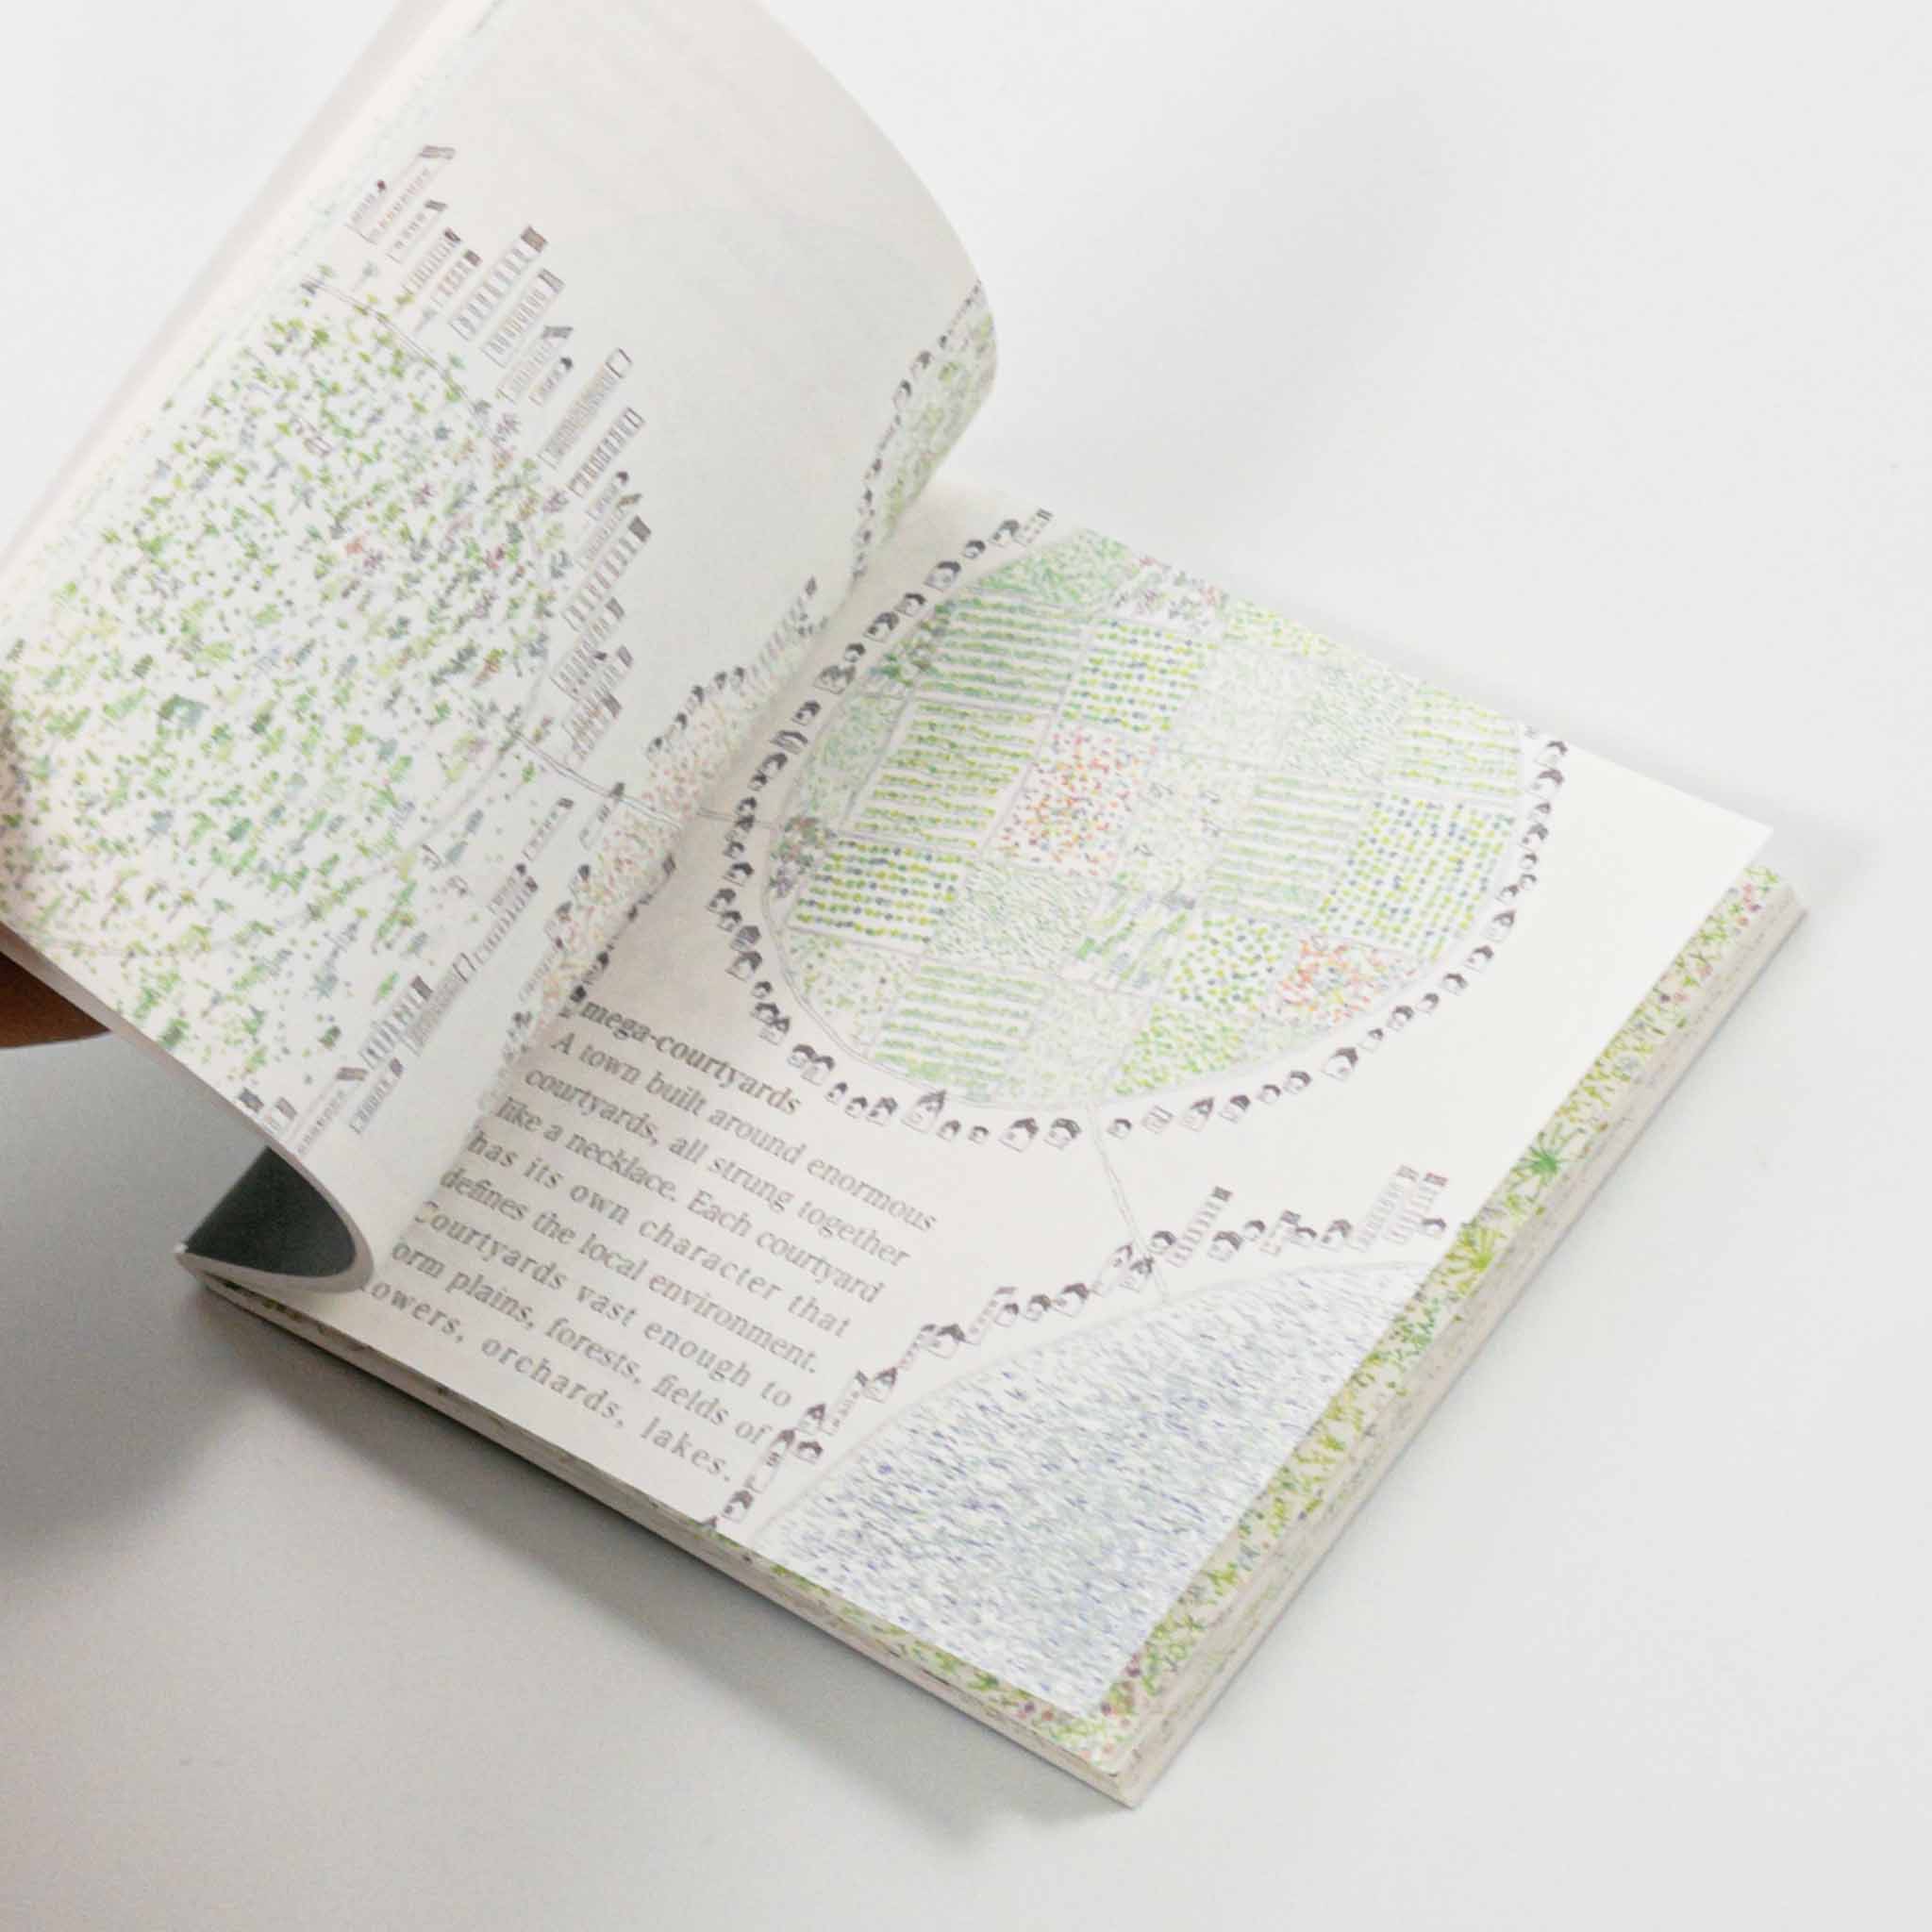 mega-courtyards
A town built around enormous
courtyards, all strung together
like a necklace. Each courtyard
has its own character that
defines the local environment.
Courtyards vast enough to
orm plains, forests, fields of
owers, orchards, lakes.